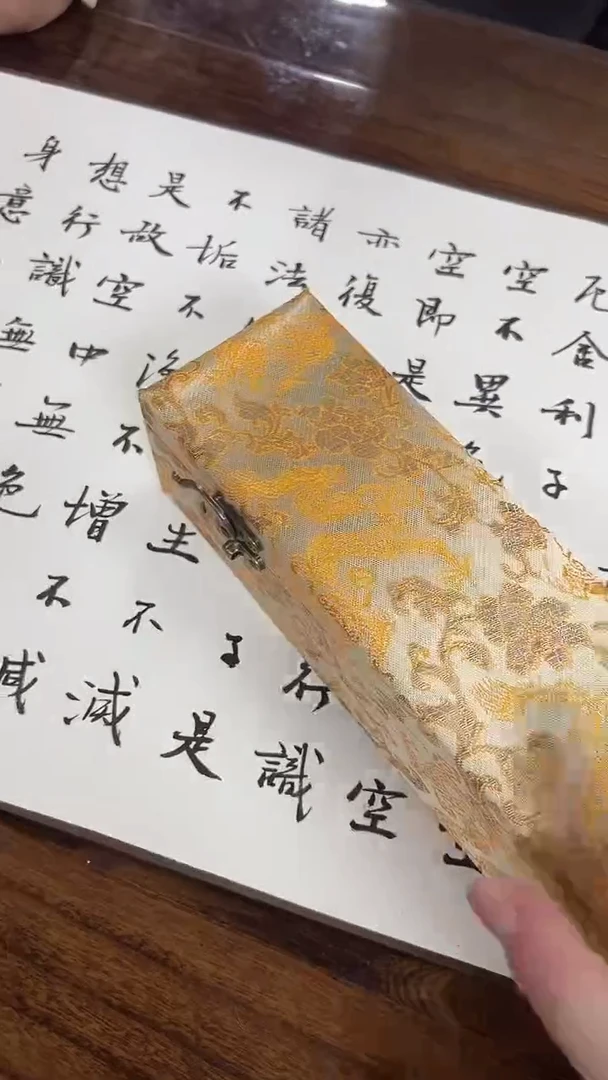 厄舍利子空
空不異空
空即是行識
亦復子是
諸法生不滅
不垢不不增不減
是故空中無色
想行識無
身意